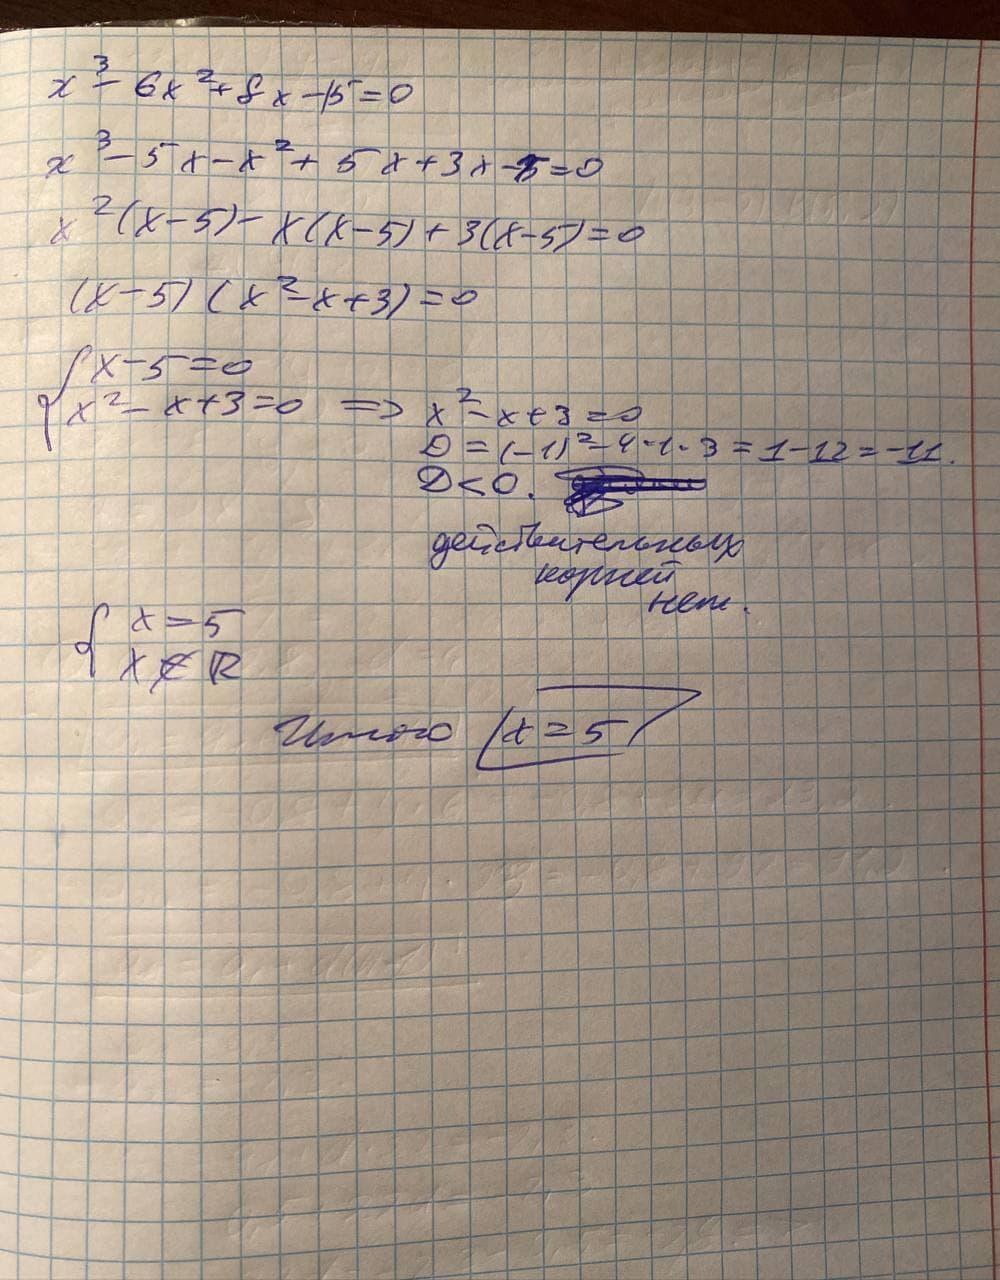 x³ - 6x² + 8x - 15 = 0
x³ - 5x - x² + 5x + 3x - 5 = 0
x²(x-5) - x(x-5) + 3(x-5) = 0
(x-5)(x² - x + 3) = 0
{ x - 5 = 0
x² - x + 3 = 0 => x² - x + 3 = 0
D = (-1)² - 4·1·3 = 1 - 12 = -11.
D < 0.
действительных
корней
нет.
{ x = 5
x ∉ R
Итого x = 5